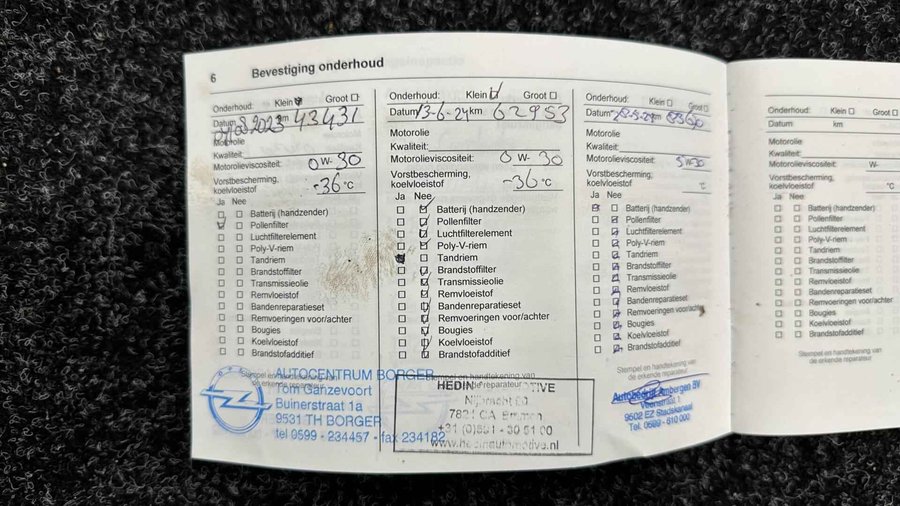 6 Bevestiging onderhoud
Onderhoud: Klein Groot
Datum 2023 km 43431
Motorolie
Kwaliteit:
Motorolieviscositeit: 0 W- 30
Vorstbescherming,
koelvloeistof -36 °C
Ja Nee
Batterij (handzender)
Pollenfilter
Luchtfilterelement
Poly-V-riem
Tandriem
Brandstoffilter
Transmissieolie
Remvloeistof
Bandenreparatieset
Remvoeringen voor/achter
Bougies
Koelvloeistof
Brandstofadditief
Stempel en handtekening van
de erkende reparateur
OPEL
AUTOCENTRUM BORGER
Tom Ganzevoort
Buinerstraat 1a
9531 TH BORGER
tel 0599 - 234457 - fax 234182
Onderhoud: Klein Groot
Datum 13-6-24 km 62953
Motorolie
Kwaliteit:
Motorolieviscositeit: 0 W- 30
Vorstbescherming,
koelvloeistof -36 °C
Ja Nee
Batterij (handzender)
Pollenfilter
Luchtfilterelement
Poly-V-riem
Tandriem
Brandstoffilter
Transmissieolie
Remvloeistof
Bandenreparatieset
Remvoeringen voor/achter
Bougies
Koelvloeistof
Brandstofadditief
de erkende reparateur
HEDIN
7821 CA Emmen
www.hedinautomotive.nl
Onderhoud: Klein Groot
Datum km
Motorolie
Kwaliteit:
Motorolieviscositeit: 5W30
Vorstbescherming,
koelvloeistof °C
Ja Nee
Batterij (handzender)
Pollenfilter
Luchtfilterelement
Poly-V-riem
Tandriem
Brandstoffilter
Transmissieolie
Remvloeistof
Bandenreparatieset
Remvoeringen voor/achter
Bougies
Koelvloeistof
Brandstofadditief
Stempel en handtekening van
de erkende reparateur
Autobedrijf Ambergen BV
Veenstraat 1
9502 EZ Stadskanaal
Tel. 0599 - 610 000
Onderhoud: Klein Groot
Datum km
Motorolie
Kwaliteit:
Motorolieviscositeit: W-
Vorstbescherming,
koelvloeistof °C
Ja Nee
Batterij (handzender)
Pollenfilter
Luchtfilterelement
Poly-V-riem
Tandriem
Brandstoffilter
Transmissieolie
Remvloeistof
Bandenreparatieset
Remvoeringen voor/achter
Bougies
Koelvloeistof
Brandstofadditief
Stempel en handtekening van
de erkende reparateur